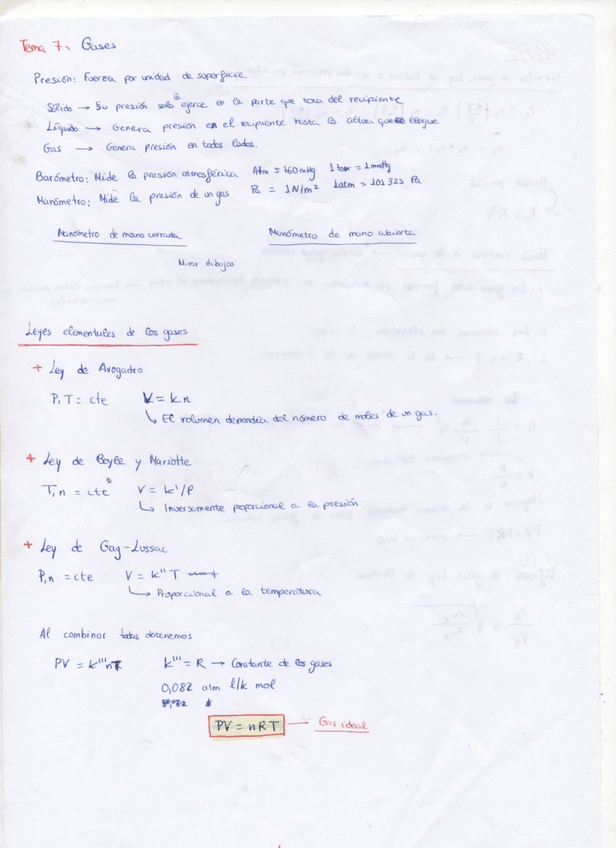 Tema 7: Gases
Presión: Fuerza por unidad de superficie
Sólido → Su presión solo ejerce en la parte que toca del recipiente
Líquido → Genera presión en el recipiente hasta la altura que llegue
Gas → Genera presión en todos lados.
Barómetro: Mide la presión atmosférica Atm = 760 mmHg 1 torr = 1 mmHg
Manómetro: Mide la presión de un gas Pa = 1 N/m² 1 atm = 101.325 Pa
Manómetro de mano cerrada Manómetro de mano abierta
Mirar dibujos
Leyes elementales de los gases
+ Ley de Avogadro
P, T = cte V = kn
↳ El volumen dependría del número de moles de un gas.
+ Ley de Boyle y Mariotte
T, n = cte V = k'/P
↳ Inversamente proporcional a la presión
+ Ley de Gay-Lussac
P, n = cte V = k'' T
↳ Proporcional a la temperatura
Al combinar todas obtenemos
PV = k''' nT k''' = R → Constante de los gases
0,082 atm l/k mol
PV = nRT → Gas ideal